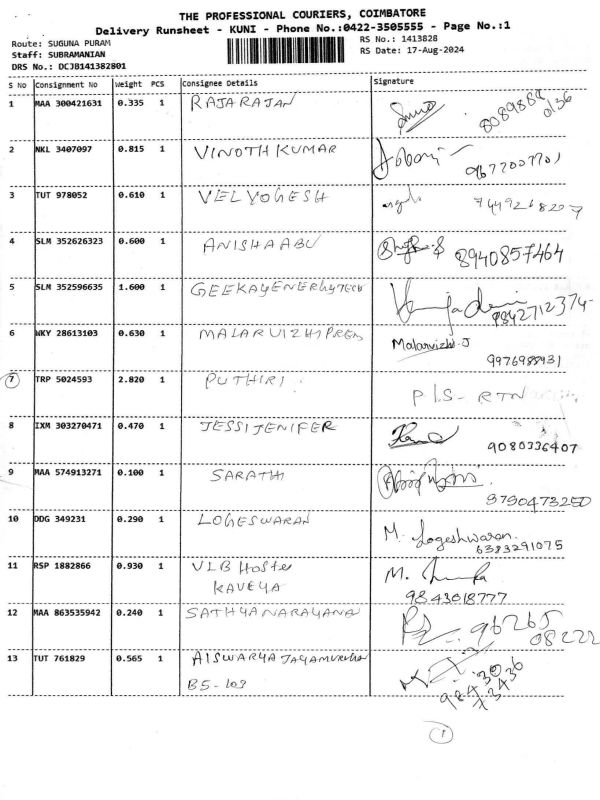 THE PROFESSIONAL COURIERS, COIMBATORE
Delivery Runsheet - KUNI - Phone No.:0422-3505555 - Page No.:1
Route: SUGUNA PURAM
RS No.: 1413828
Staff: SUBRAMANIAN
RS Date: 17-Aug-2024
DRS No.: DCJB141382801
S No Consignment No Weight PCS Consignee Details Signature
1 MAA 300421631 0.335 1 RAJARAJAN
2 NKL 3407097 0.815 1 VINOTH KUMAR
3 TUT 978052 0.610 1 VELYOGESH
4 SLM 352626323 0.600 1 ANISHAABU 8940857464
5 SLM 352596635 1.600 1 GEEKAYENERGYTECH
9842712374
6 WKY 28613103 0.630 1 MALARVIZHIPREM Malarvizhi.J
9976988931
7 TRP 5024593 2.820 1 PUTHIRI P.I.S- RTN
8 IXM 303270471 0.470 1 JESSIJENIFER
9080336407
9 MAA 574913271 0.100 1 SARATHI
9790473250
10 DDG 349231 0.290 1 LOGESWARAN M. Logeshwaran
6383291075
11 RSP 1882866 0.930 1 VLB Hostel M.
KAVEYA 9843018777
12 MAA 863535942 0.240 1 SATHYANARAYANA 96265
08222
13 TUT 761829 0.565 1 AISWARYA
B5-103 98430
73436
1